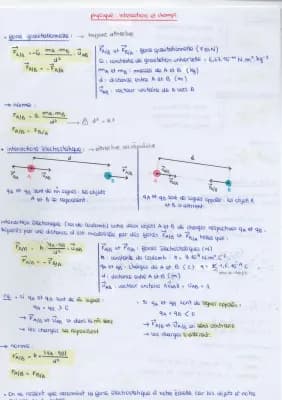 physique : interaction et champs
• force gravitationnelle : → toujours attractive
F⃗A/B = -G mA·mB/d² · u⃗AB
F⃗A/B = -F⃗B/A
F⃗A/B et F⃗B/A : force gravitationnelle (en N)
G : constante de gravitation universelle = 6,67·10⁻¹¹ N·m²·kg⁻²
mA et mB : masses de A et B (kg)
d : distance entre A et B (m)
u⃗AB : vecteur unitaire de A vers B
→ norme :
FA/B = G mA·mB/d²
FA/B = FB/A
• interactions électrostatique : → attractive ou répulsive
d
d
qA et qB sont de m̂ signes : les objets
A et B se repoussent.
qA et qB sont de signes opposés : les objets A
et B s'attirent.
interaction électrique (loi de coulomb) entre deux objets A et B de charges respectives qA et qB
séparés par une distance d est modélisée par des forces F⃗A/B et F⃗B/A telles que :
F⃗A/B = k qA·qB/d² · u⃗AB
F⃗A/B = -F⃗B/A
F⃗A/B et F⃗B/A : forces électrostatiques (N)
k : constante de coulomb : k = 9·10⁹ N·m²·C⁻²
qA et qB : charges de A et B (C)
d : distance entre A et B (m)
u⃗AB : vecteur unitaire
• si qA et qB sont de m̂ signe :
qA · qB > 0
→ F⃗A/B et u⃗AB de m̂ sens
→ les charges se repoussent
• si qA et qB sont de signes opposés :
qA · qB < 0
→ F⃗A/B et u⃗AB sens contraire
→ les charges s'attirent.
→ norme :
FA/B = k × |qA·qB|/d²
FA/B = FB/A
• On ne ressent que rarement la force électrostatique à notre échelle car les objets à notre